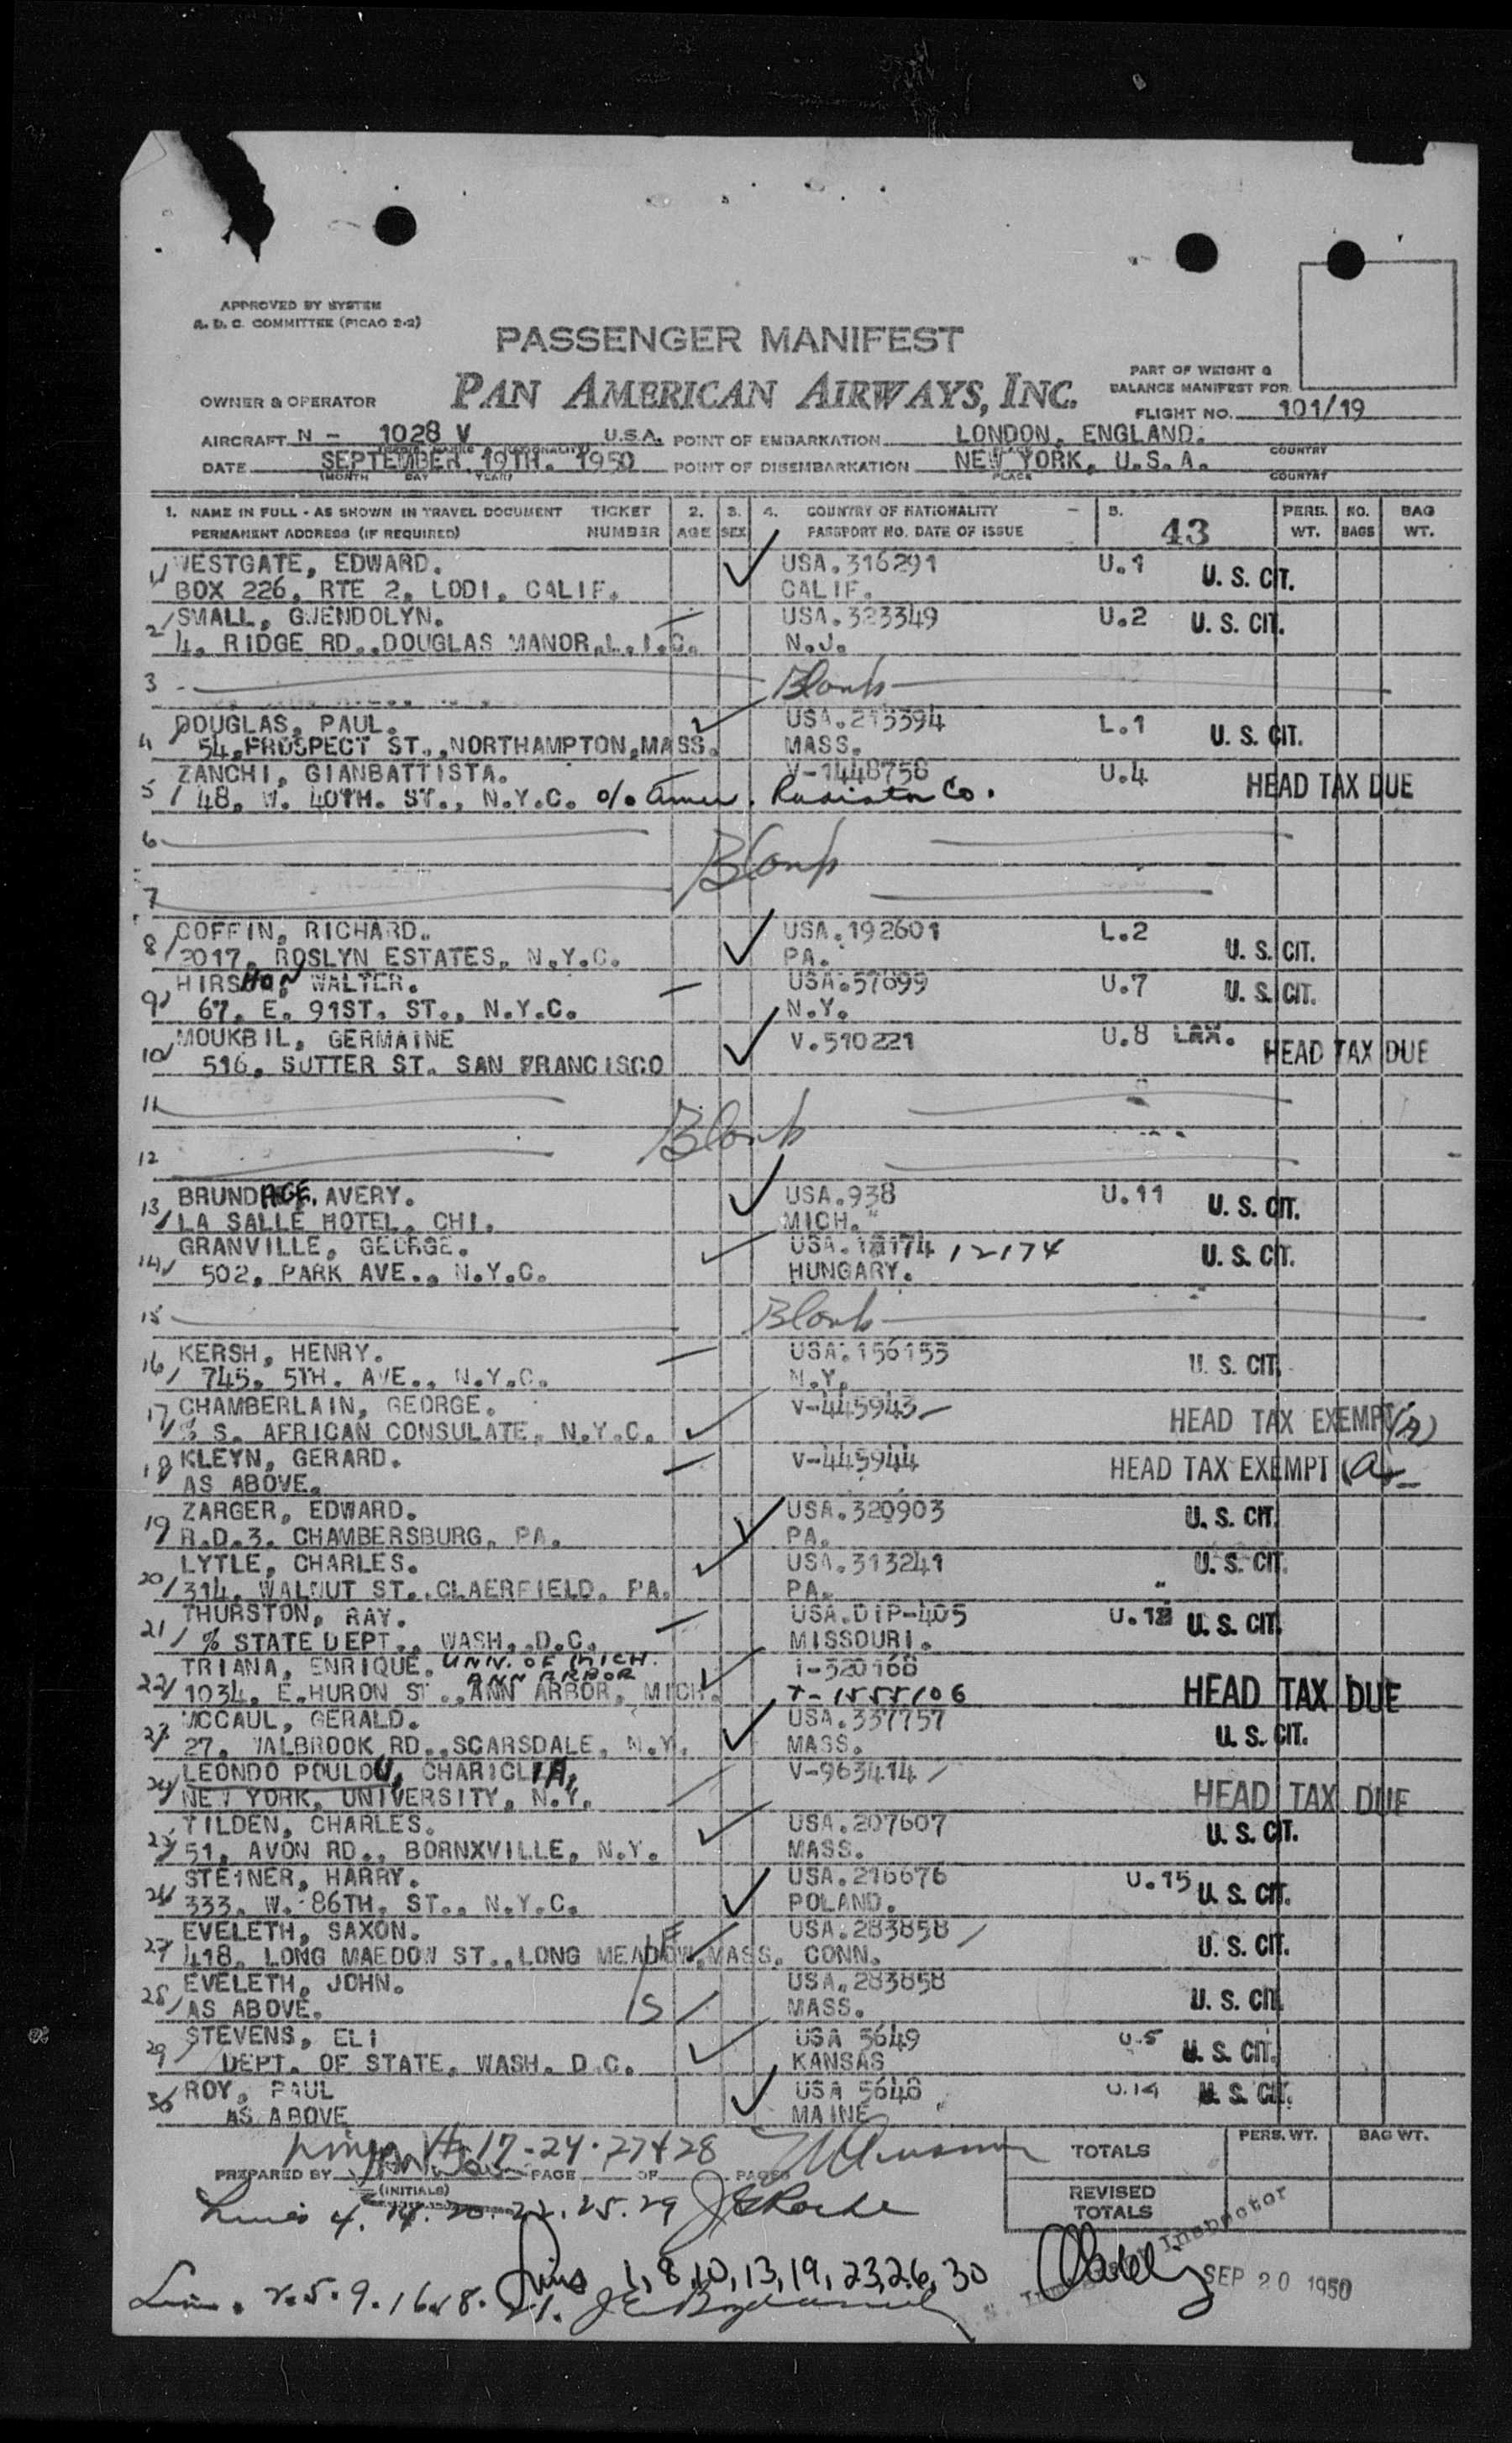 APPROVED BY SYSTEM
A. D. C. COMMITTEE (PICAO 2-2)
PASSENGER MANIFEST
PAN AMERICAN AIRWAYS, INC.
OWNER & OPERATOR
PART OF WEIGHT &
BALANCE MANIFEST FOR
FLIGHT NO. 101/19
AIRCRAFT N - 1028 V U.S.A. POINT OF EMBARKATION LONDON, ENGLAND.
COUNTRY
DATE SEPTEMBER 19TH. 1950 POINT OF DISEMBARKATION NEW YORK, U.S.A.
(MONTH DAY YEAR) PLACE COUNTRY
1. NAME IN FULL - AS SHOWN IN TRAVEL DOCUMENT TICKET 2. 3. 4. COUNTRY OF NATIONALITY 5. 43 PERS. NO. BAG
PERMANENT ADDRESS (IF REQUIRED) NUMBER AGE SEX PASSPORT NO. DATE OF ISSUE WT. BAGS WT.
1 WESTGATE, EDWARD. USA.316291 U.1 U. S. CIT.
BOX 226, RTE 2, LODI, CALIF. CALIF.
2 SMALL, GWENDOLYN. USA.323349 U.2 U. S. CIT.
4, RIDGE RD.,DOUGLAS MANOR,L.I.C. N.J.
3 Blank
4 DOUGLAS, PAUL. USA.213394 L.1 U. S. CIT.
54,PROSPECT ST.,NORTHAMPTON,MASS. MASS.
5 ZANCHI, GIANBATTISTA. V-1448758 U.4 HEAD TAX DUE
48, W. 40TH. ST., N.Y.C. c/o Amer. Radiator Co.
6
Blank
7
8 COFFIN, RICHARD. USA.192601 L.2 U. S. CIT.
2017, ROSLYN ESTATES, N.Y.C. PA.
9 HIRSHON, WALTER. USA.57699 U.7 U. S. CIT.
67, E. 91ST. ST., N.Y.C. N.Y.
10 MOUKBIL, GERMAINE V.510221 U.8 LAX. HEAD TAX DUE
516, SUTTER ST. SAN FRANCISCO
11
Blank
12
13 BRUNDAGE, AVERY. USA.938 U.11 U. S. CIT.
LA SALLE HOTEL, CHI. MICH.
14 GRANVILLE, GEORGE. USA. 12174 U. S. CIT.
502, PARK AVE., N.Y.C. HUNGARY.
15 Blank
16 KERSH, HENRY. USA.156155 U. S. CIT.
745, 5TH. AVE., N.Y.C. N.Y.
17 CHAMBERLAIN, GEORGE. V-445943 HEAD TAX EXEMPT (A)
% S. AFRICAN CONSULATE, N.Y.C.
18 KLEYN, GERARD. V-445944 HEAD TAX EXEMPT (A)
AS ABOVE.
19 ZARGER, EDWARD. USA.320903 U. S. CIT.
R.D.3, CHAMBERSBURG, PA. PA.
20 LYTLE, CHARLES. USA.313241 U. S. CIT.
314, WALNUT ST.,CLAERFIELD, PA. PA.
21 THURSTON, RAY. USA.DIP-405 U. S. CIT.
% STATE DEPT., WASH. D.C. MISSOURI.
22 TRIANA, ENRIQUE. UNIV. OF MICH. ANN ARBOR 1-320168
1034, E.HURON ST.,ANN ARBOR, MICH. T-1555106 HEAD TAX DUE
23 MCCAUL, GERALD. USA.337757 U. S. CIT.
27, WALBROOK RD.,SCARSDALE, N.Y. MASS.
24 LEONDO POULOU, CHARICLIA, V-963414 HEAD TAX DUE
NEW YORK, UNIVERSITY, N.Y.
25 TILDEN, CHARLES. USA.207607 U. S. CIT.
51, AVON RD., BORNXVILLE, N.Y. MASS.
26 STEINER, HARRY. USA.216676 U.15 U. S. CIT.
333, W. 86TH. ST., N.Y.C. POLAND.
27 EVELETH, SAXON. USA.283858 U. S. CIT.
418, LONG MAEDOW ST.,LONG MEADOW,MASS. CONN.
28 EVELETH, JOHN. USA.283858 U. S. CIT.
AS ABOVE. MASS.
29 STEVENS, ELI USA 5649 U.5 U. S. CIT.
DEPT. OF STATE, WASH. D.C. KANSAS
30 ROY, PAUL USA 5648 U.14 U. S. CIT.
AS ABOVE MAINE
17-24-27+28
PREPARED BY PAGE OF PAGES
(INITIALS)
TOTALS PERS. WT. BAG WT.
REVISED TOTALS
Lines 4. 14. 20. 22. 25. 29
Lines 1, 8, 10, 13, 19, 23, 26, 30
Inspector SEP 20 1950
2. 5. 9. 16. 18. 21.